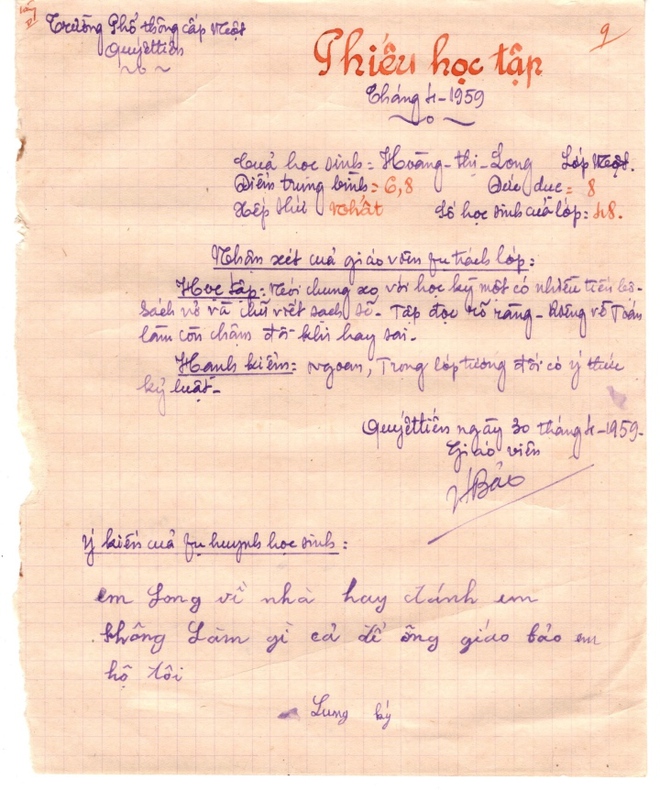 Trường Phổ thông cấp một
Quyết tiến
9
Phiếu học tập
Tháng 4-1959
Của học sinh = Hoàng-thị-Long Lớp Một.
Điểm trung bình = 6,8 Đức dục = 8
Xếp thứ Nhất Số học sinh của lớp: 48.
Nhận xét của giáo viên fụ trách lớp:
Học tập: Nói chung xo, với học kỳ một có nhiều tiến bộ-
Sách vở và chữ viết sạch sẽ- Tập đọc rõ ràng- Riêng về Toán
làm còn chậm đôi khi hay sai.
Hạnh kiểm: ngoan, Trong lớp tương đối có ý thức
kỷ luật-
Quyết tiến ngày 30 tháng 4-1959-
Giáo viên
Bảo
Ý kiến của fụ huynh học sinh:
em Long về nhà hay đánh em
không Làm gì cả để ông giáo bảo em
hộ tôi
Lung ký